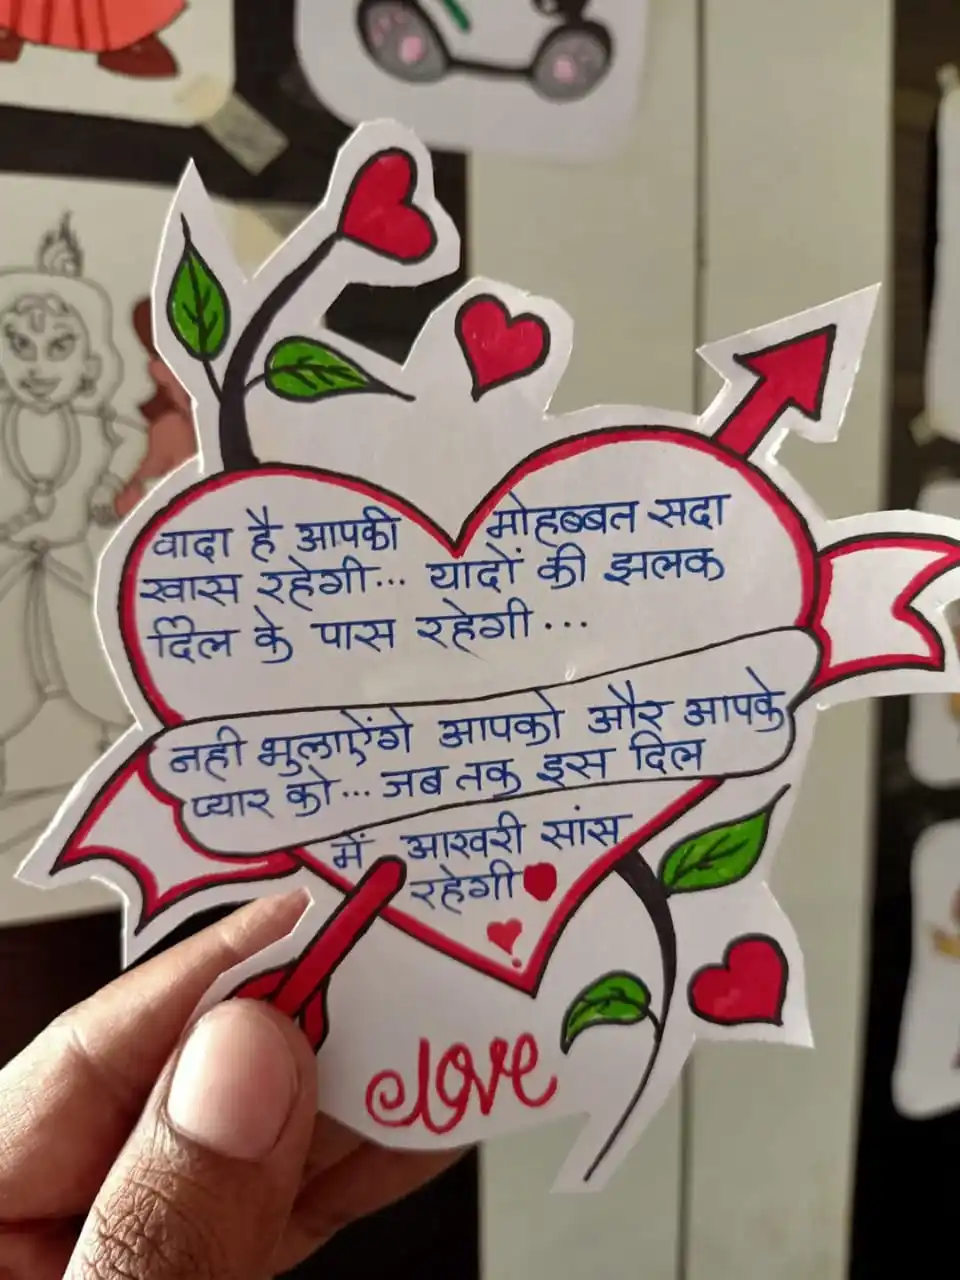 वादा है आपकी मोहब्बत सदा
खास रहेगी... यादों की झलक
दिल के पास रहेगी...
नही भुलाऐंगे आपको और आपके
प्यार को... जब तक इस दिल
में आखरी सांस
रहेगी
love